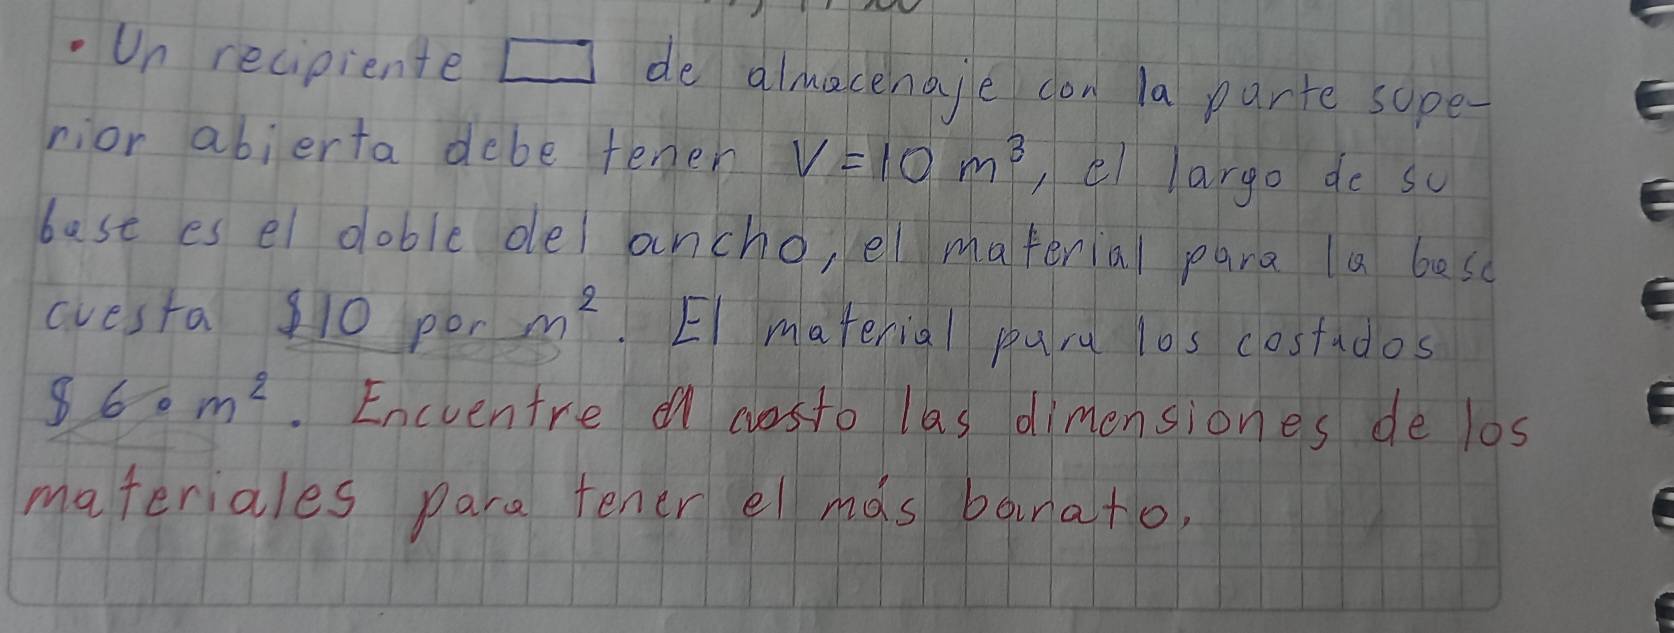 • Un recipiente de almacenaje con la parte supe-
rior abierta debe tener V=10 m³, el largo de su
base es el doble del ancho, el material para la base
cuesta $10 por m². El material para los costados
$ 6 • m². Encuentre el costo las dimensiones de los
materiales para tener el más barato.